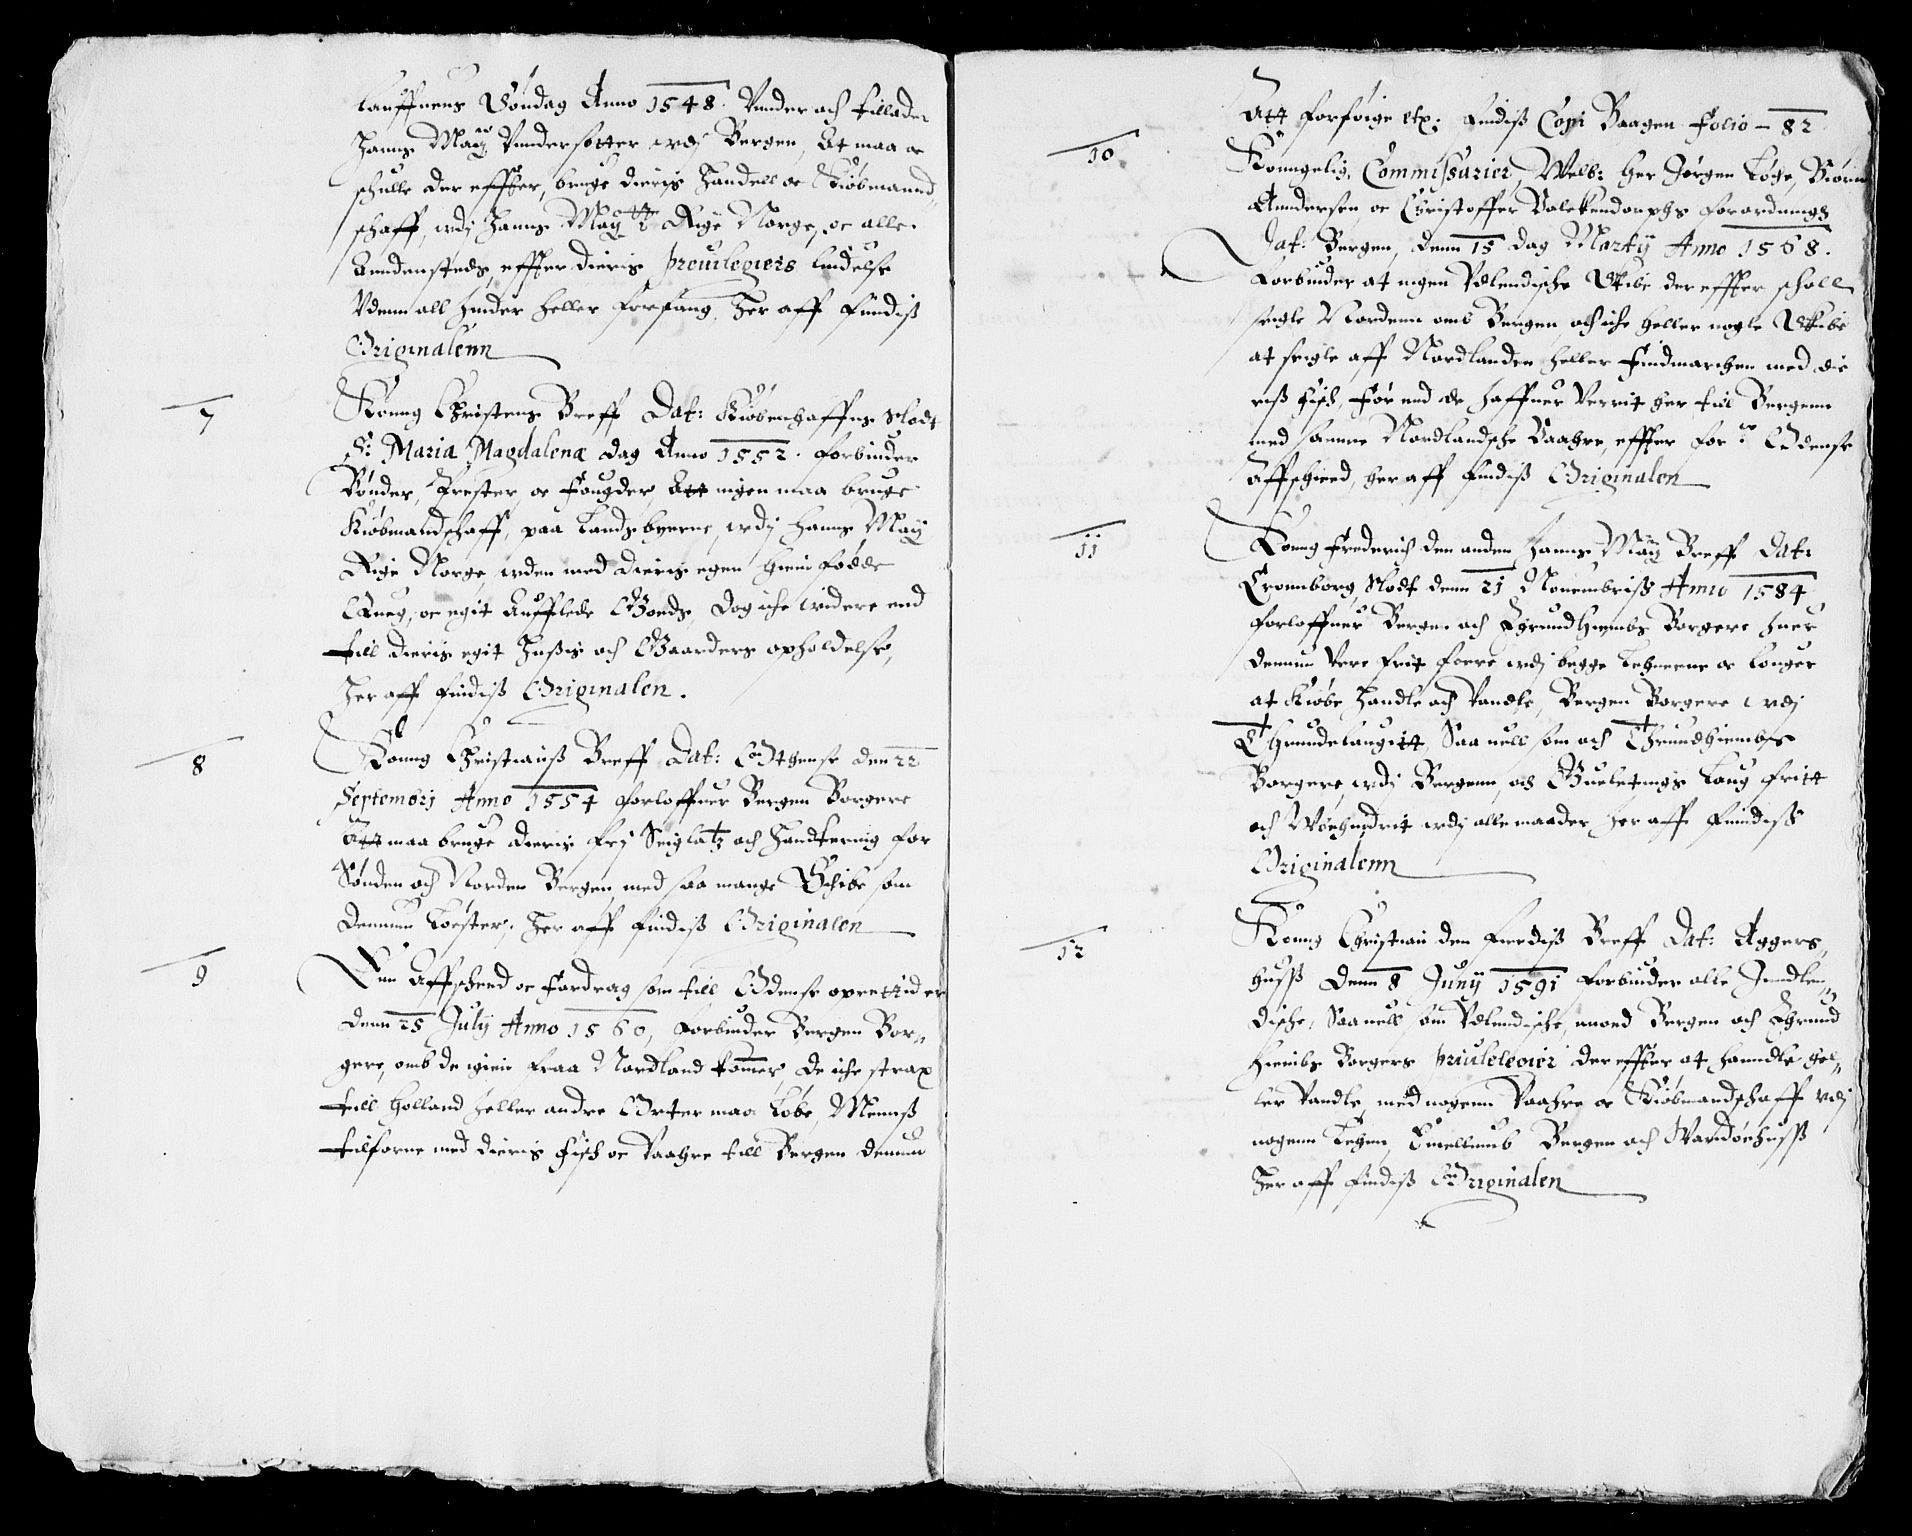 lauffuens Søndag Anno 1548. Vnder och tillader
Hanns Maÿtz Vndersotter wdj Bergen, At maa oc
schulle der effter, bruge dieris Handell oc Kiøbmannd,
schaff, wdj Hanns Maÿtt: Rige Norge, oc alle
Anndensteds, effter dieris preuilegiers liudelse
Vdenn all hinder heller forfang, Her aff findis
Originalenn
7
Konng Christens Breff Dat: Kiøbenhaffns slodt
S: Maria Magdalenæ dag Anno 1552. forbiuder
Bønder, Prester, oc Fougder Att ingen maa bruge
Kiøbmandschaff, paa Landsbyerne, wdj hanns Maÿ
Rige Norge, wden med dieris egen hiemfødde
Queg, oc egit Aufflede Goeds, dog iche widere end
till dieris egit Husis och Gaarders opholdelse,
Her aff findiß Originalen.
8
Konng Christianß Breff Dat: Othense den 22
Septembrj Anno 1554 forloffuer Bergen Borgere
Att maa bruge dieris frj Seiglatz och Handtering for
Sønden och Norden Bergen, med saa mange Schibe som
dennum Løster, Her aff findiß Originalen
9
Een Affscheed oc fordrag som till Odense oprettid er
denn 25 Julÿ Anno 1560, forbiuder Bergen Bor,,
gere, omb de igien fraa Nordland kommer, de iche strax
till Holland heller andre Orter maa Løbe, Menns
tilforne med dieris Fisch oc Vaahre till Bergen dennum
Att forføige etc: findiß Copi Baagen folio – 82
10
Konngelig, Commissarier, Welb: Her Jørgen Løge, Biørn
Anndersen oc Christoffer Valckendorphs forordningh
Dat: Bergen, denn 15 dag Martÿ Anno 1568.
forbiuder at ingen Vdlendische Skibe der effter schall
seigle Nordenn omb Bergen och iche heller nogle Skibe
at seigle aff Nordlanden heller Findmarchen med die
ris Fisch, før end de haffuer Verrit her till Bergenn
med samme Nordlandsche Vaahre, effter forne Odense
Affschieed, her aff findiß Originalen
11
Konng Frederich den anden Hanns Maÿtz Breff Dat:
Cronnborg Slodt denn 21 Nouembriß Anno 1584
forloffuer Bergen och Thrundhiembs Borgere huer
dennum Vere frit foere wdj begge Lehnerne oc Louger
at Kiøbe Handle och Vandle, Bergen Borgere wdj
Thrundelaugitt, Saauell som och Thrundhiembs
Borgere wdj Bergenn, och Gueletings Laug fritt
och Wbehindrit wdj alle maader Her aff findiß
Originalenn
12
Konng Christian den Fierdiß Breff Dat: Aggers,,
huss denn 8 Junÿ 1591 forbiuder alle Inndlen,,
dische, Saauell som Vdlendische, imoed Bergen och Thrund
hiembs Borgers priuilelegier der effter at hanndle hel,,
ler Vandle, med nogenn Vaahre oc Kiøbmandschaff wdj
nogenn Lehen, Emellumb Bergen och Wardøehuss
Her aff findiß Originalen